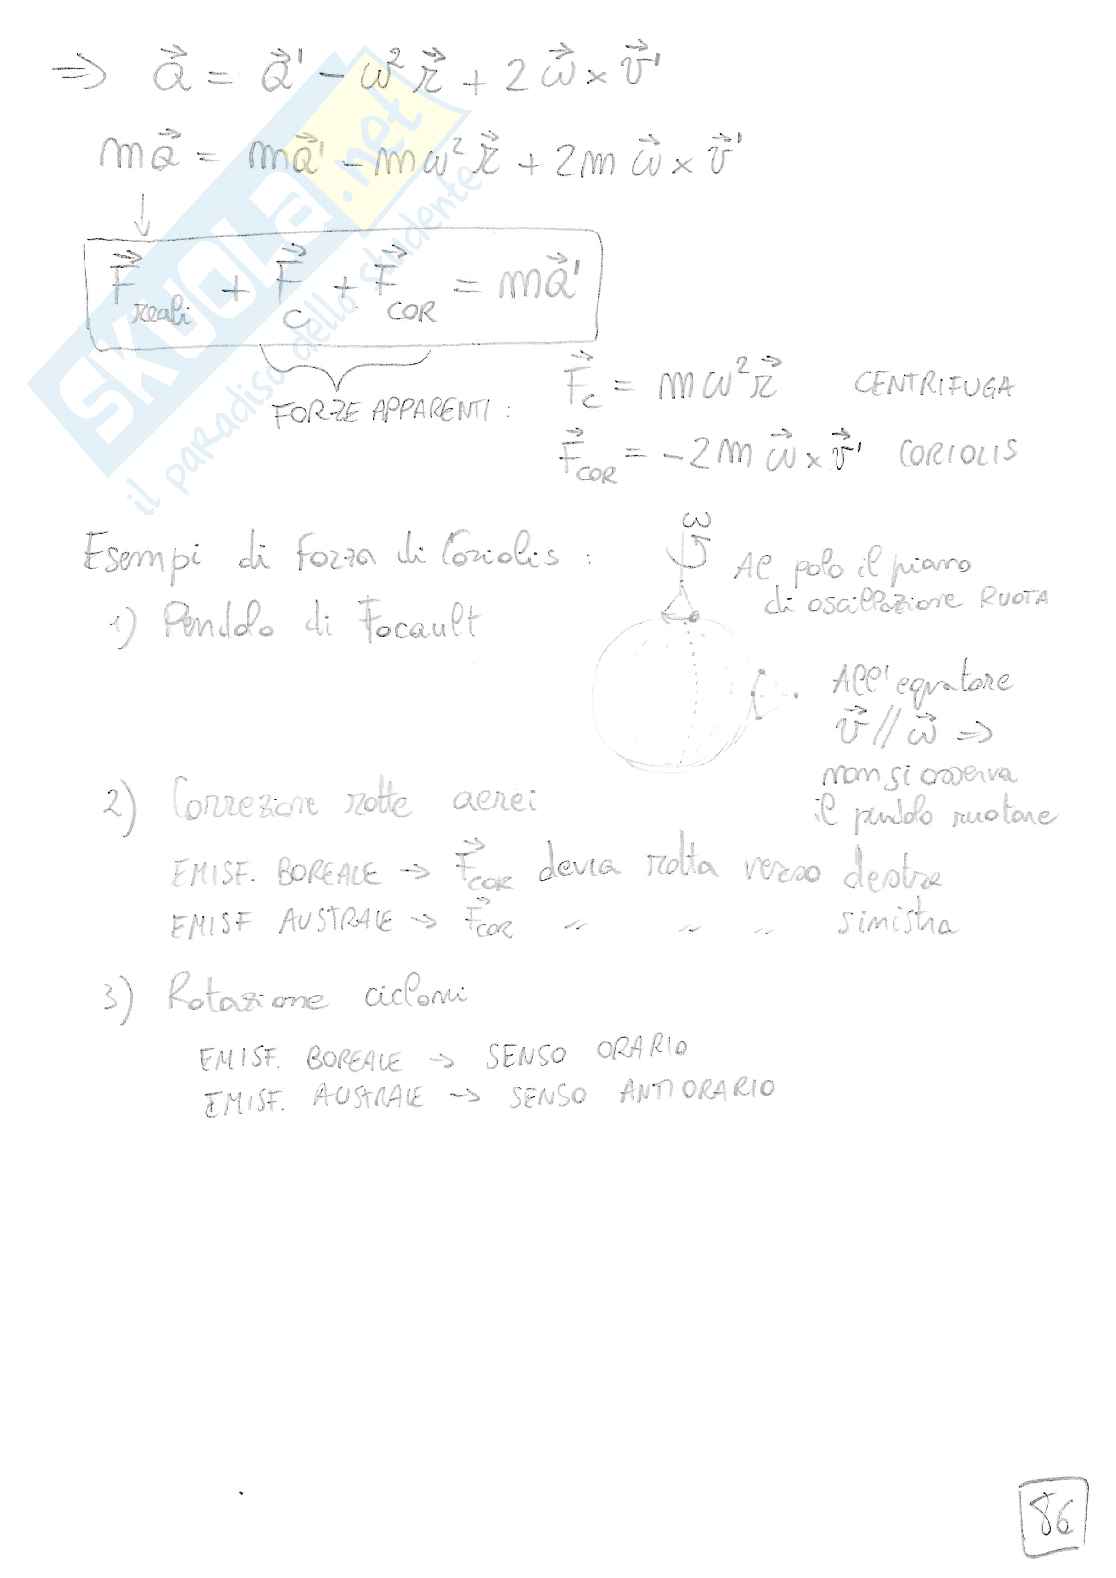 ⇒ a⃗ = a⃗' − ω² r⃗ + 2 ω⃗ × v⃗'
ma⃗ = ma⃗' − mω² r⃗ + 2m ω⃗ × v⃗'
↓
F⃗reali + F⃗C + F⃗COR = ma⃗'
FORZE APPARENTI :
F⃗C = mω² r⃗ CENTRIFUGA
F⃗COR = −2m ω⃗ × v⃗' CORIOLIS
Esempi di Forza di Coriolis :
ω
Al polo il piano
di oscillazione RUOTA
1) Pendolo di Focault
All'equatore
v⃗ // ω⃗ ⇒
non si osserva
il pendolo ruotare
2) Correzione rotte aerei
EMISF. BOREALE → F⃗COR devia rotta verso destra
EMISF AUSTRALE → F⃗COR " " " sinistra
3) Rotazione cicloni
EMISF. BOREALE → SENSO ORARIO
EMISF. AUSTRALE → SENSO ANTIORARIO
86
SKUOLA.net
il paradiso dello studente